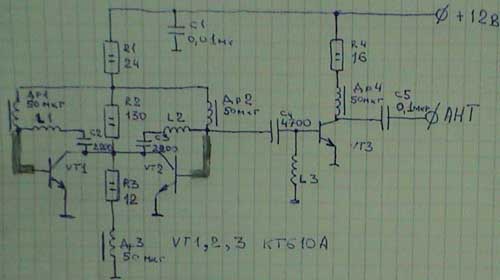 C1
0,01мк
+12В
R1
24
R4
16
Др1
50мкг
R2
130
L1
L2
Др2
50мкг
Др4
50мкг
C5
0,1мк
АНТ
C2
2200
C3
2200
C4
4700
VT1
VT2
VT3
R3
12
L3
Др3
50мкг
VT1,2,3 КТ610А